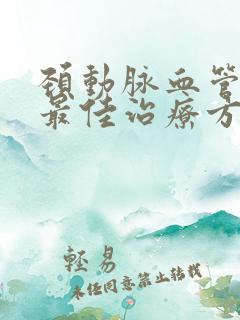 頚動脉血管
最佳治療方
輕易
未任同意禁止转载